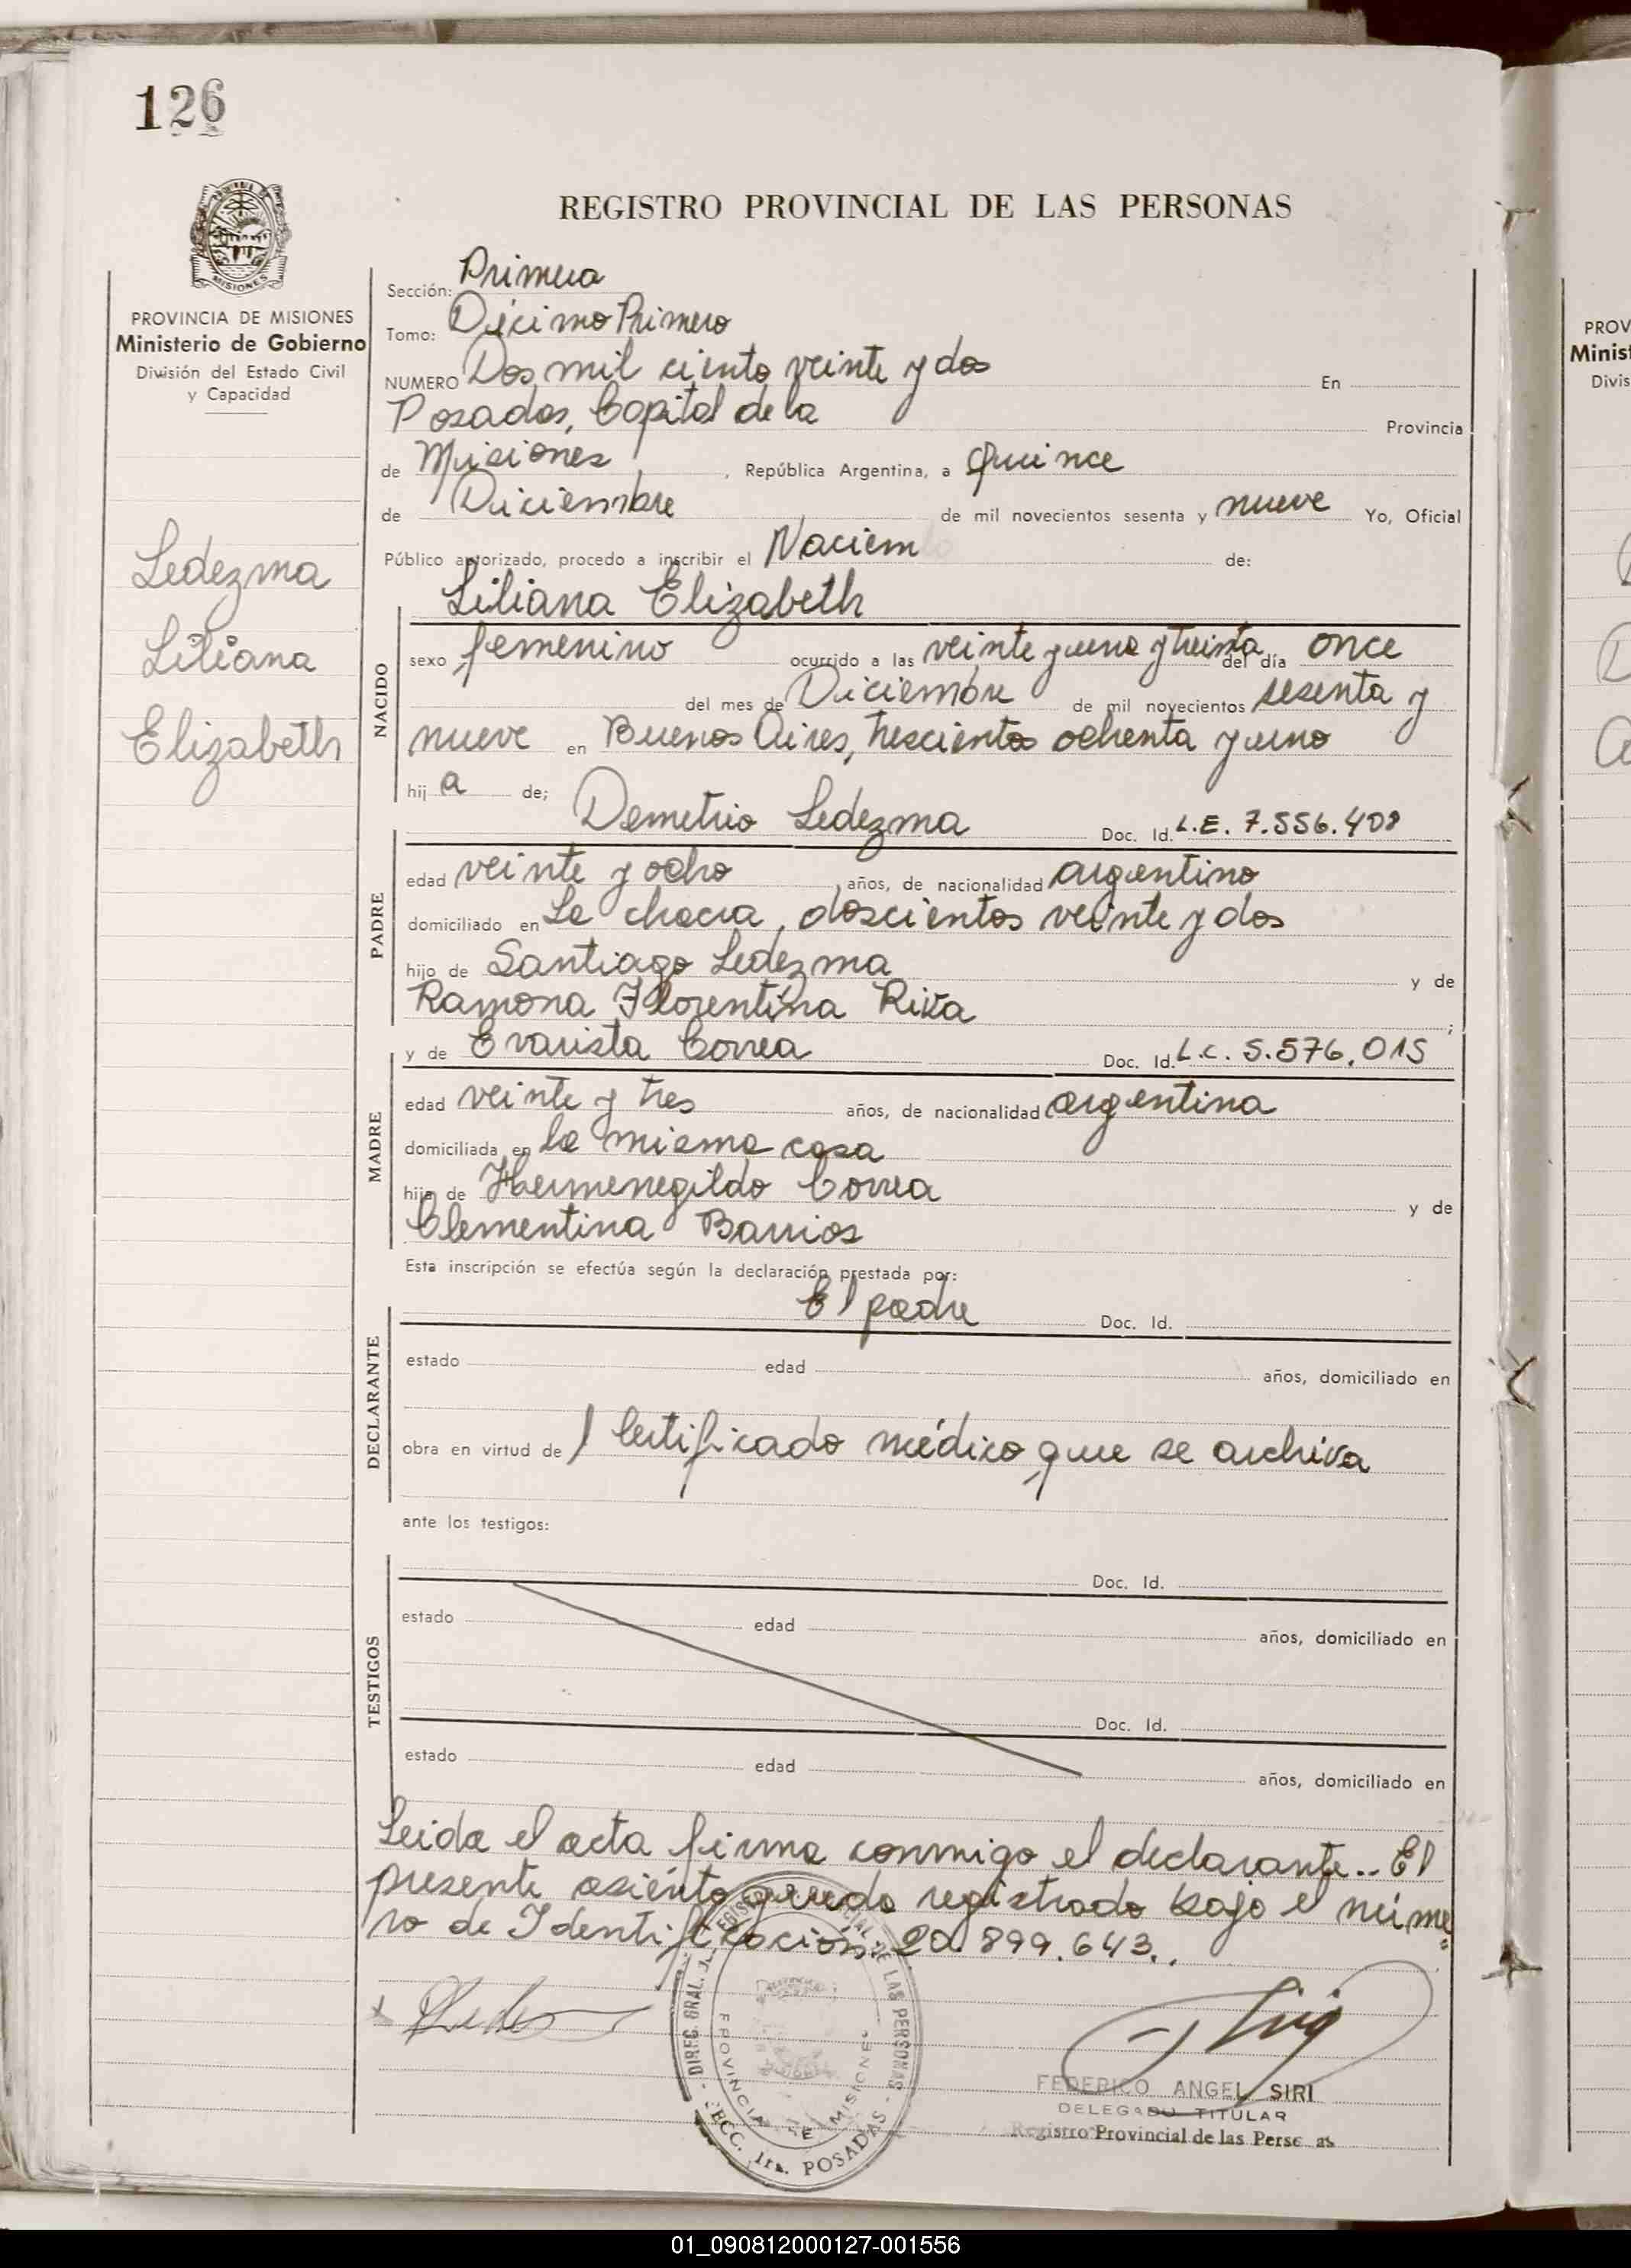 126
REGISTRO PROVINCIAL DE LAS PERSONAS
MISIONES
PROVINCIA DE MISIONES
Ministerio de Gobierno
División del Estado Civil
y Capacidad
Ledezma
Liliana
Elizabeth
Sección: Primera
Tomo: Décimo Primero
NUMERO Dos mil ciento veinte y dos En
Posadas, Capital de la Provincia
de Misiones, República Argentina, a Quince
de Diciembre de mil novecientos sesenta y nueve Yo, Oficial
Público autorizado, procedo a inscribir el Naciem de:
Liliana Elizabeth
NACIDO
sexo femenino ocurrido a las veinte y una y treinta del día once
del mes de Diciembre de mil novecientos sesenta y
nueve en Buenos Aires, trescientos ochenta y uno
hij a de;
Demetrio Ledezma Doc. Id. L.E. 7.556.408
PADRE
edad veinte y ocho años, de nacionalidad argentino
domiciliado en La chacra, doscientos veinte y dos
hijo de Santiago Ledezma y de
Ramona Florentina Riva;
y de Evarista Correa Doc. Id. L.C. 5.576.015
MADRE
edad veinte y tres años, de nacionalidad argentina
domiciliada en la misma casa
hija de Hermenegildo Correa y de
Clementina Barrios
Esta inscripción se efectúa según la declaración prestada por:
El padre Doc. Id.
DECLARANTE
estado edad años, domiciliado en
obra en virtud de / Certificado médico, que se archiva
ante los testigos:
TESTIGOS
Doc. Id.
estado edad años, domiciliado en
Doc. Id.
estado edad años, domiciliado en
Leida el acta firma conmigo el declarante.. El
presente asiento queda registrado bajo el núme
ro de Identificación: 20.899.643..
DIREC. GRAL. REGISTRO PROVINCIAL DE LAS PERSONAS
PROVINCIA DE MISIONES
SECC. 1ra. POSADAS
FEDERICO ANGEL SIRI
DELEGADO TITULAR
Registro Provincial de las Perso as
PROV
Minist
Divis
01_090812000127-001556